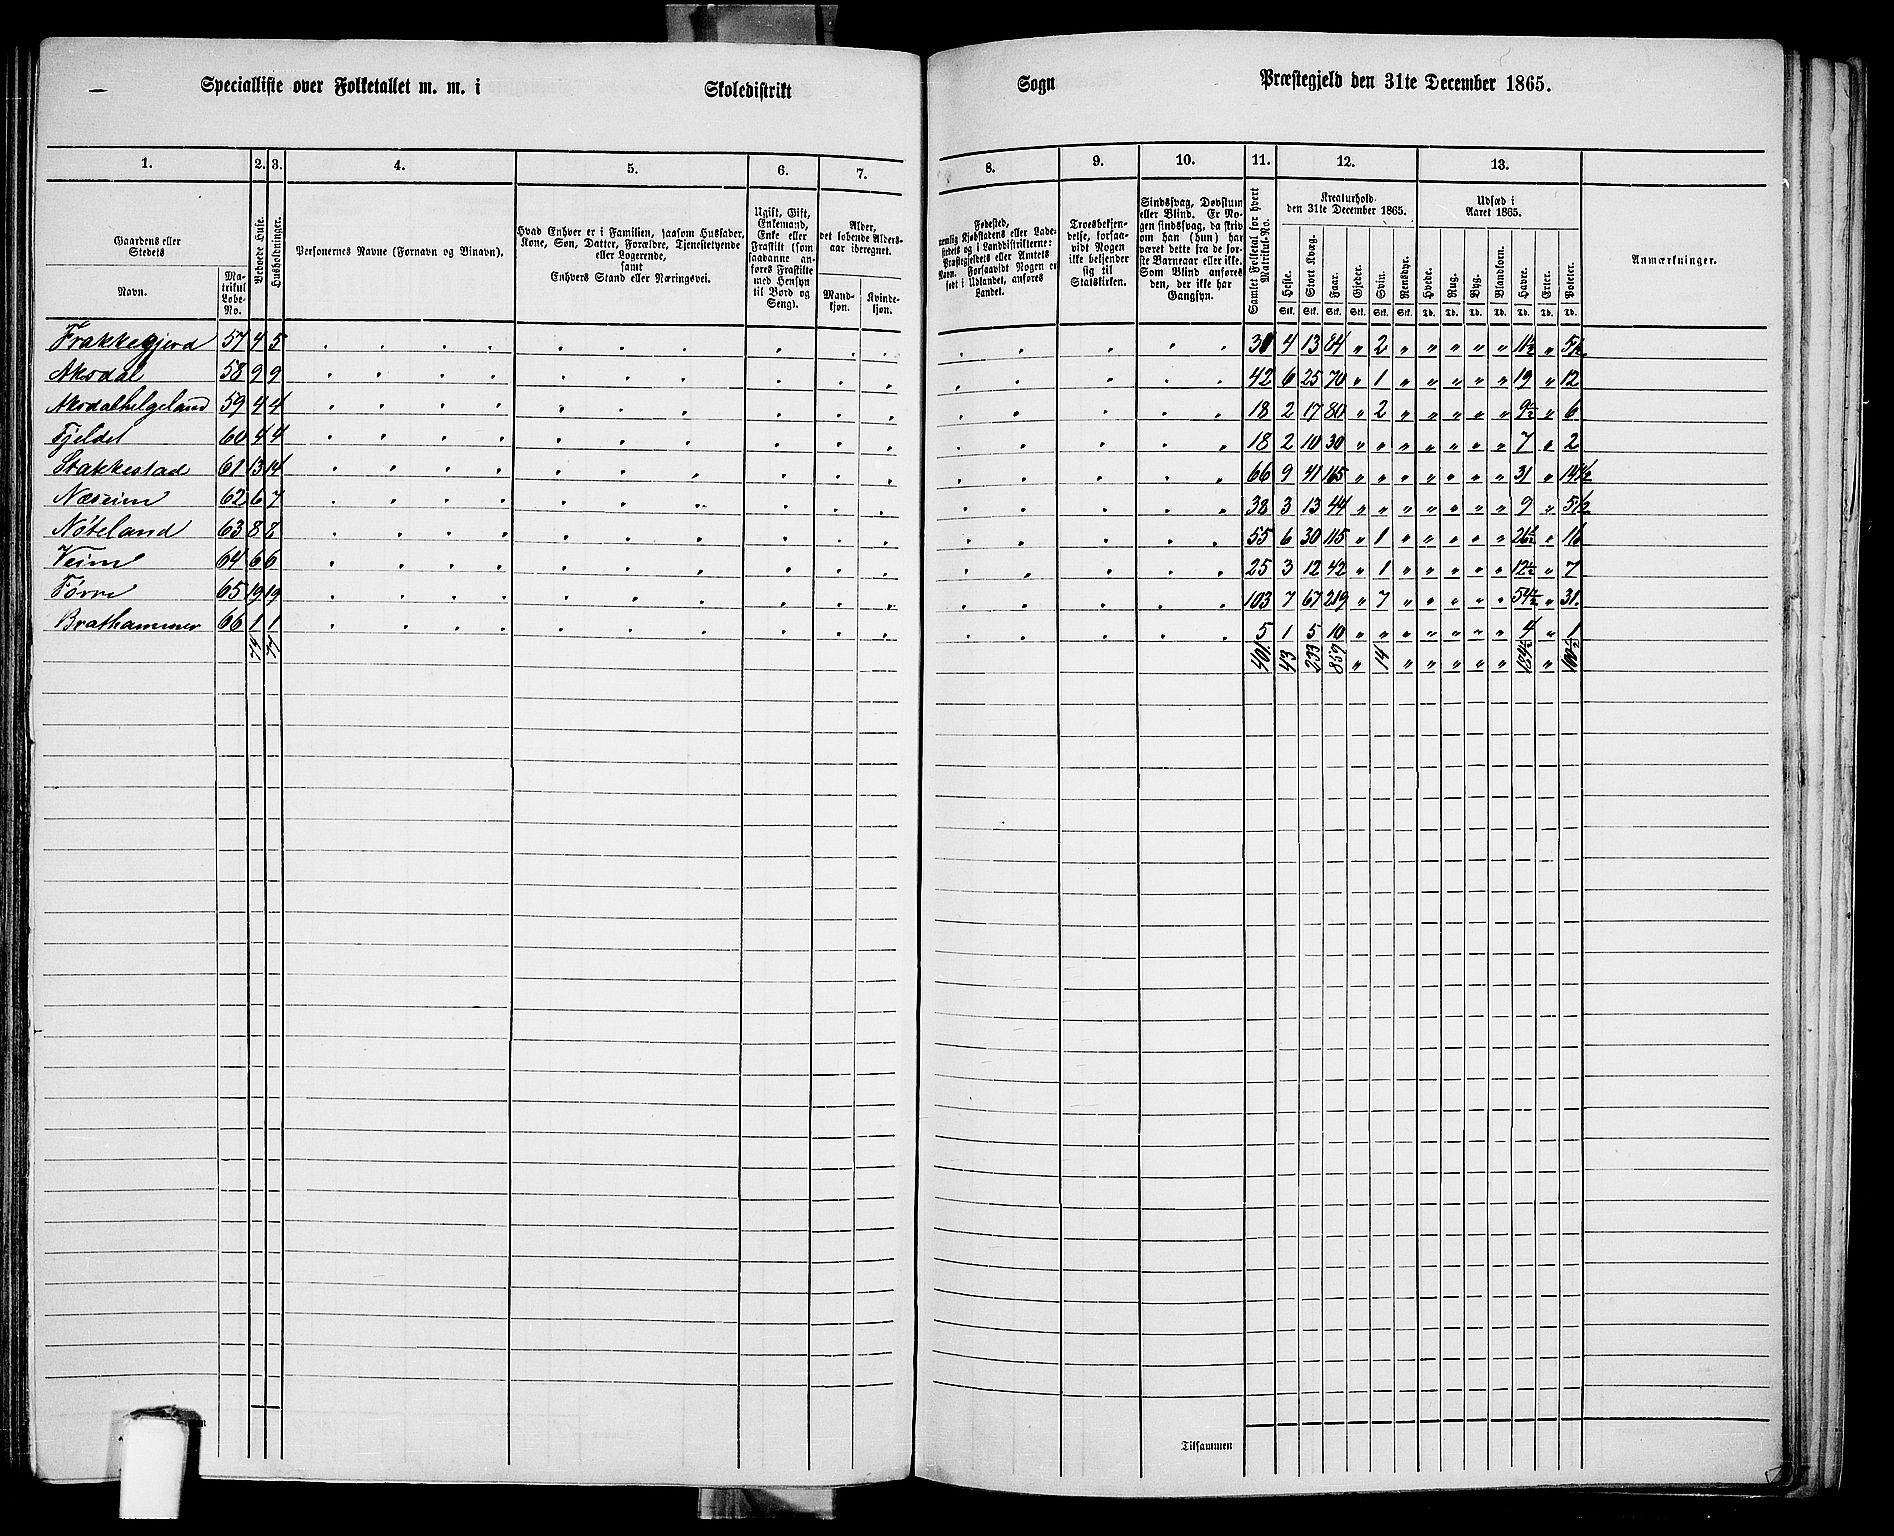 Specialliste over Folketallet m. m. i Skoledistrikt Sogn Præstegjeld den 31te December 1865.
1. 2. 3. 4. 5. 6. 7. 8. 9. 10. 11. 12. 13.
Gaardens eller Stedets
Navn.
Matrikul Løbe-No.
Beboede Huse.
Husholdninger.
Personernes Navne (Fornavn og Binavn).
Hvad Enhver er i Familien, saasom Husfader, Kone, Søn, Datter, Forældre, Tjenestetyende eller Logerende, samt Enhvers Stand eller Næringsvei.
Ugift, Gift, Enkemand, Enke eller Fraskilt (som saadanne anføres Fraskilte med Hensyn til Bord og Seng).
Alder, det løbende Alders-aar iberegnet.
Mandkjøn. Kvindekjøn.
Fødested, nemlig Kjøbstadens eller Ladestedets og i Landdistrikterne: Præstegjeldets eller Amtets Navn. Forsaavidt Nogen er født i Udlandet, anføres Landet.
Troesbekjendelse, forsaavidt Nogen ikke bekjender sig til Statskirken.
Sindssvag, Døvstum eller Blind. Er Nogen sindssvag, da skriv om han (hun) har været dette fra de første Barneaar eller ikke. Som Blind anføres den, der ikke har Gangsyn.
Samlet Folketal for hvert Matrikul-No.
Kreaturhold den 31te December 1865.
Heste. Stort Kvæg. Faar. Gjeder. Svin. Rensdyr.
Stk. Stk. Stk. Stk. Stk. Stk.
Udsæd i Aaret 1865.
Hvede. Rug. Byg. Blandkorn. Havre. Erter. Poteter.
Td. Td. Td. Td. Td. Td. Td.
Anmærkninger.
Frakkegjerd 57 4 5 . . . . . . . . . . . . . . . 4 13 84 " 2 " " " " " 11½ " 5½.
Aksdal 58 9 9 . . . . . . . . . . . . . . 42 6 25 70 " 1 " " " " " 19 " 12
Aksdalhelgeland 59 4 4 . . . . . . . . . . . . . . 18 2 17 80 " 2 " " " " " 9½ " 6
Fjeldet 60 4 4 . . . . . . . . . . . . . . 18 2 10 30 " " " " " " " 7 " 2
Stakkestad 61 13 14 . . . . . . . . . . . . . . 66 9 41 165 " " " " " " " 31 " 14½
Næseim 62 6 7 . . . . . . . . . . . . . . 38 3 13 44 " " " " " " " 9 " 5½
Nøteland 63 8 8 . . . . . . . . . . . . . . 55 6 30 115 " 1 " " " " " 26½ " 16
Veim 64 6 6 . . . . . . . . . . . . . . 25 3 12 42 " 1 " " " " " 12½ " 7
Førre 65 19 19 . . . . . . . . . . . . . . 103 7 67 219 " 7 " " " " " 54½ " 31.
Brathammer 66 1 1 . . . . . . . . . . . . . . 5 1 5 10 " " " " " " " 4 " 1
74 77 401. 43 233 859 " 14 " " " " " 184½ " 100½
Tilsammen